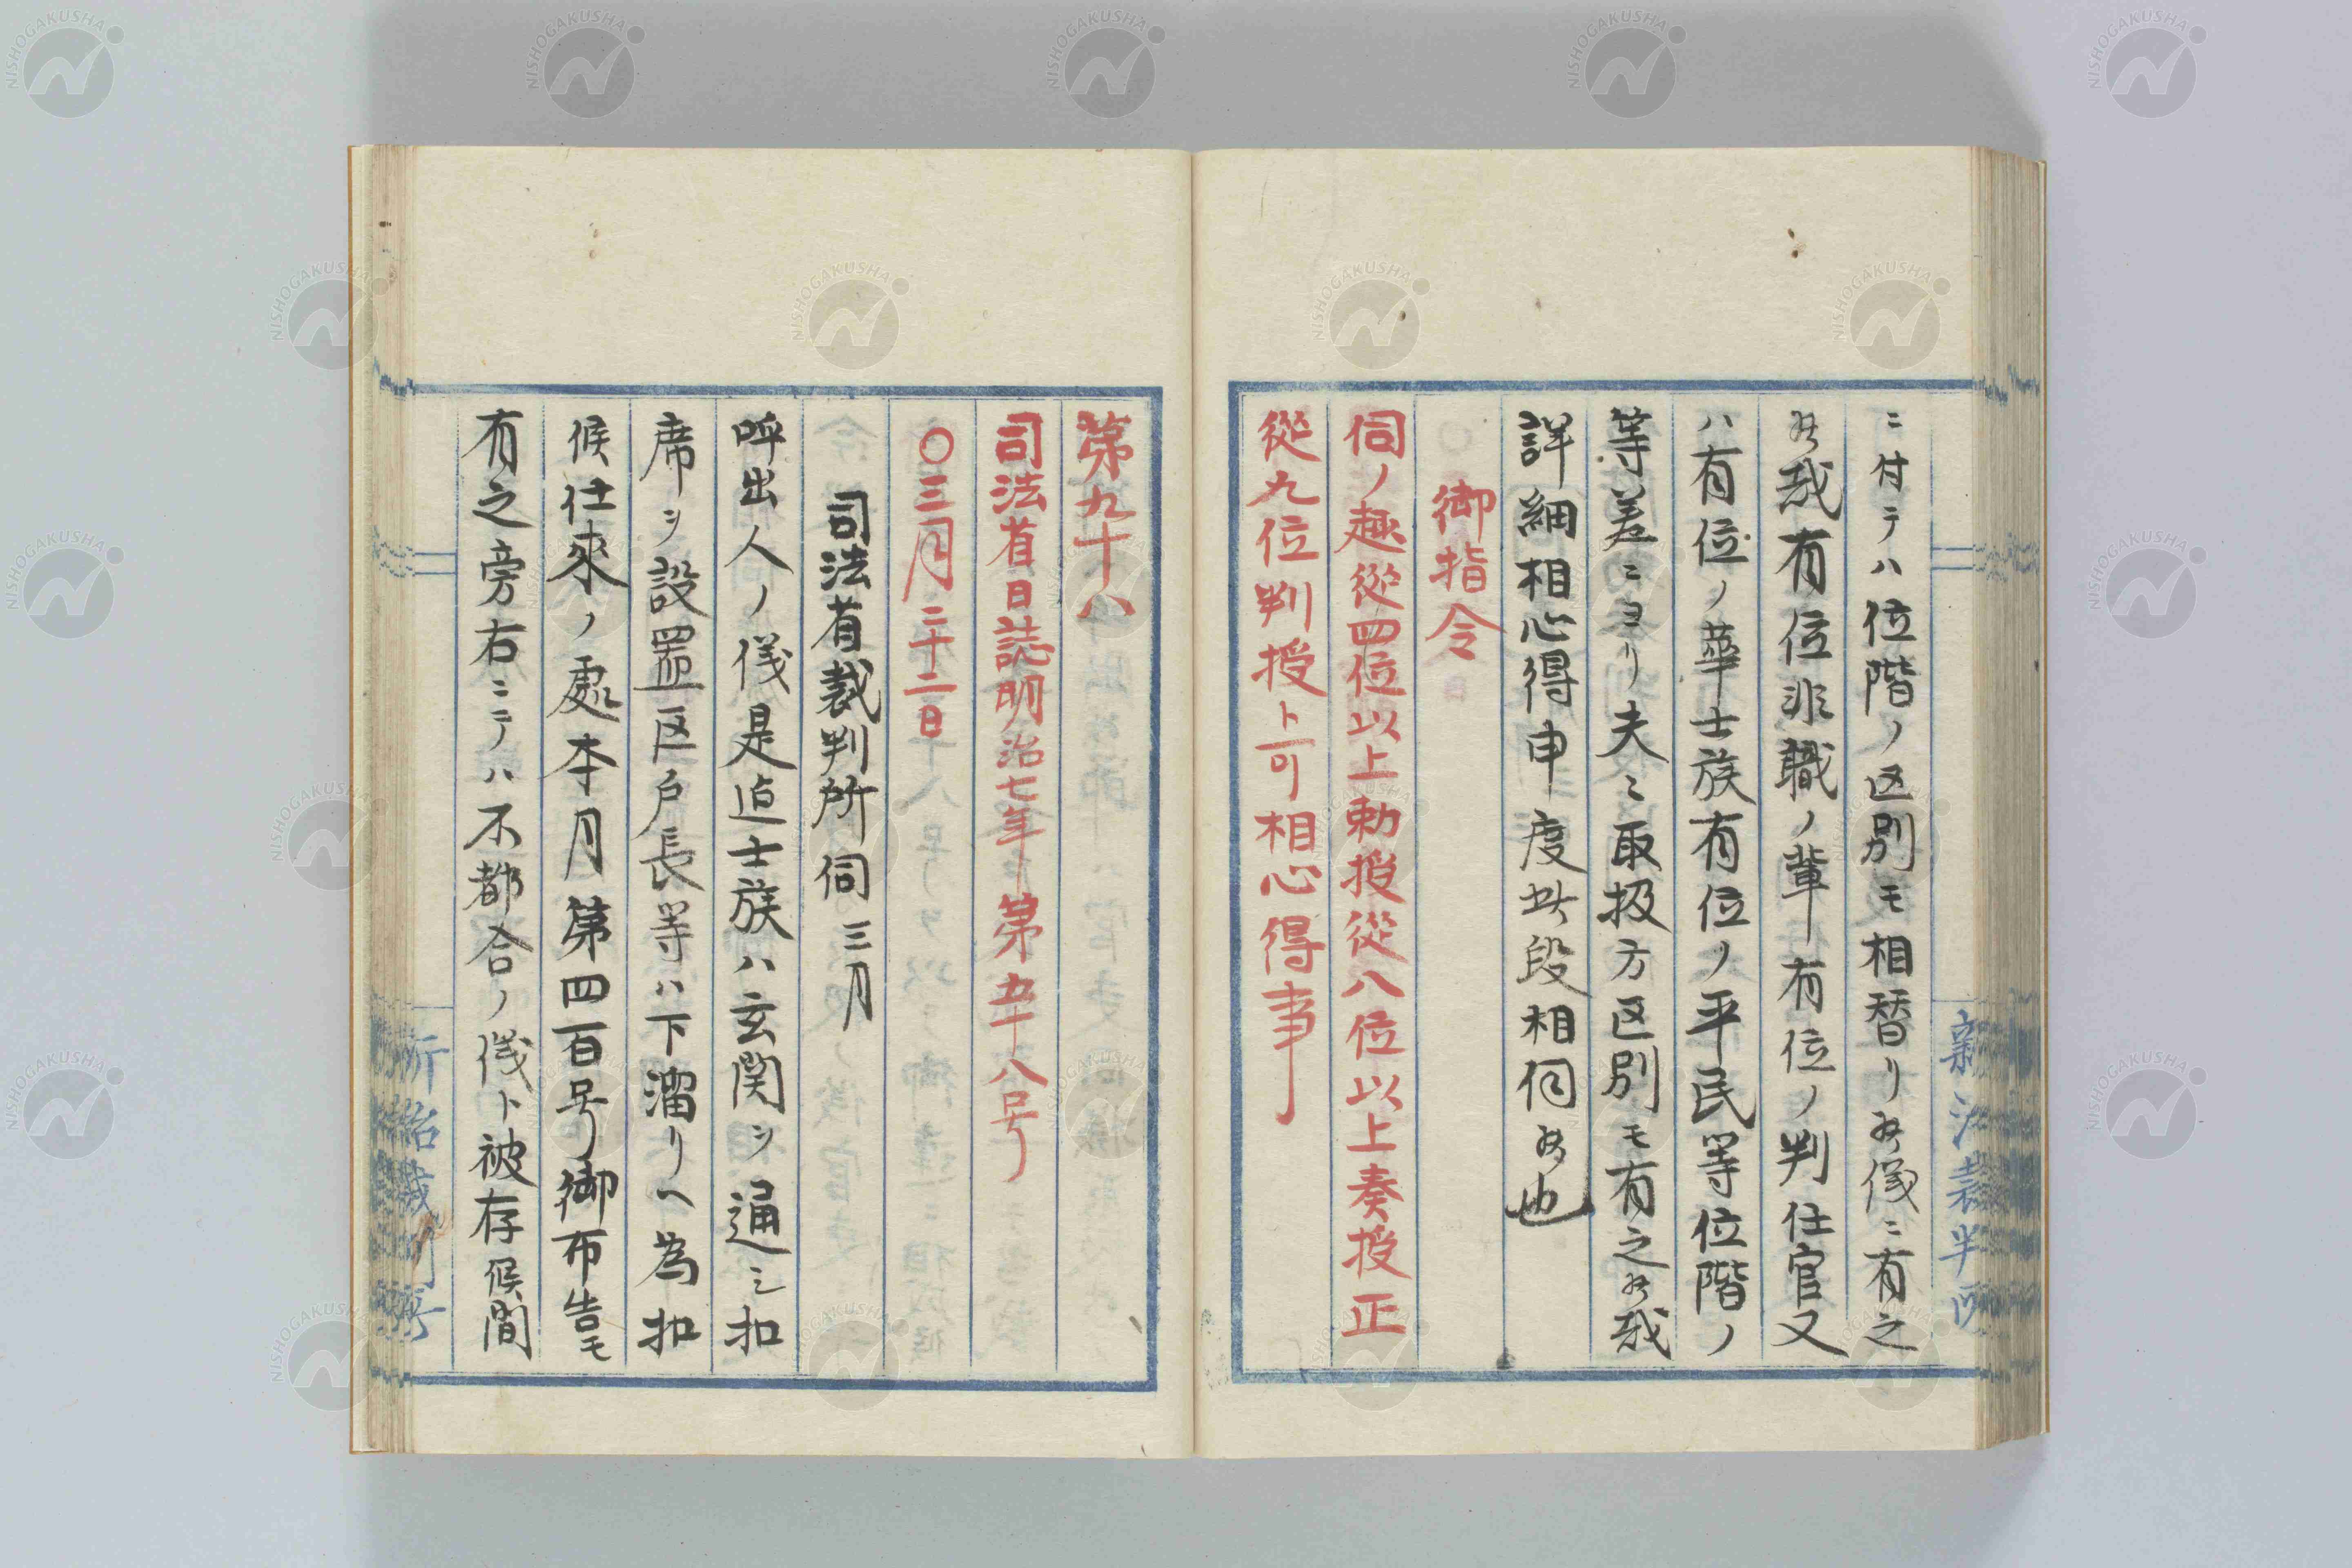 ニ付テハ位階ノ区別モ相替リ候儀ニ有之
候哉有位非職ノ輩有位ノ判任官又
ハ有位ノ華士族有位ノ平民等位階ノ
等差ニヨリ夫々取扱方区別モ有之候哉
詳細相心得申度此段相伺候也
御指令
伺ノ趣従四位以上勅授従八位以上奏授正
従九位判授ト可相心得事
第九十八
司法省日誌明治七年第五十八号
〇三月二十二日
司法省裁判所伺三月
呼出人ノ儀是迠士族ハ玄関ヲ通シ扣
席ヲ設置区戸長等ハ下溜リヘ為扣
候仕来ノ處本月第四百号御布告モ
有之旁右ニテハ不都合ノ儀ト被存候間
新治裁判所
NISHOGAKUSHA